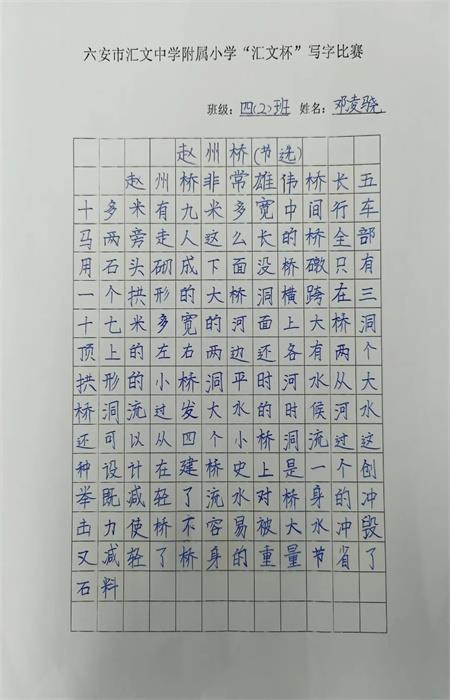 六安市汇文中学附属小学“汇文杯”写字比赛
班级：四(2)班 姓名：邓凌骁
赵州桥(节选)
赵州桥非常雄伟桥长五
十多米有九米多宽中间行车
马两旁走人这么长的桥全部
用石头砌成下面没桥礅只有
一个拱形的大桥洞横跨在三
十七米多宽的河面上大桥洞
顶上的左右两边还各有两个
拱形的小桥洞平时河水从大
桥洞流过发大水的时候河水
还可以从四个小桥洞流过这
种设计在建桥史上是一个创
举既减轻了流水对桥身的冲
击力使桥不容易被大水冲毁
又减轻了桥身的重量节省了
石料